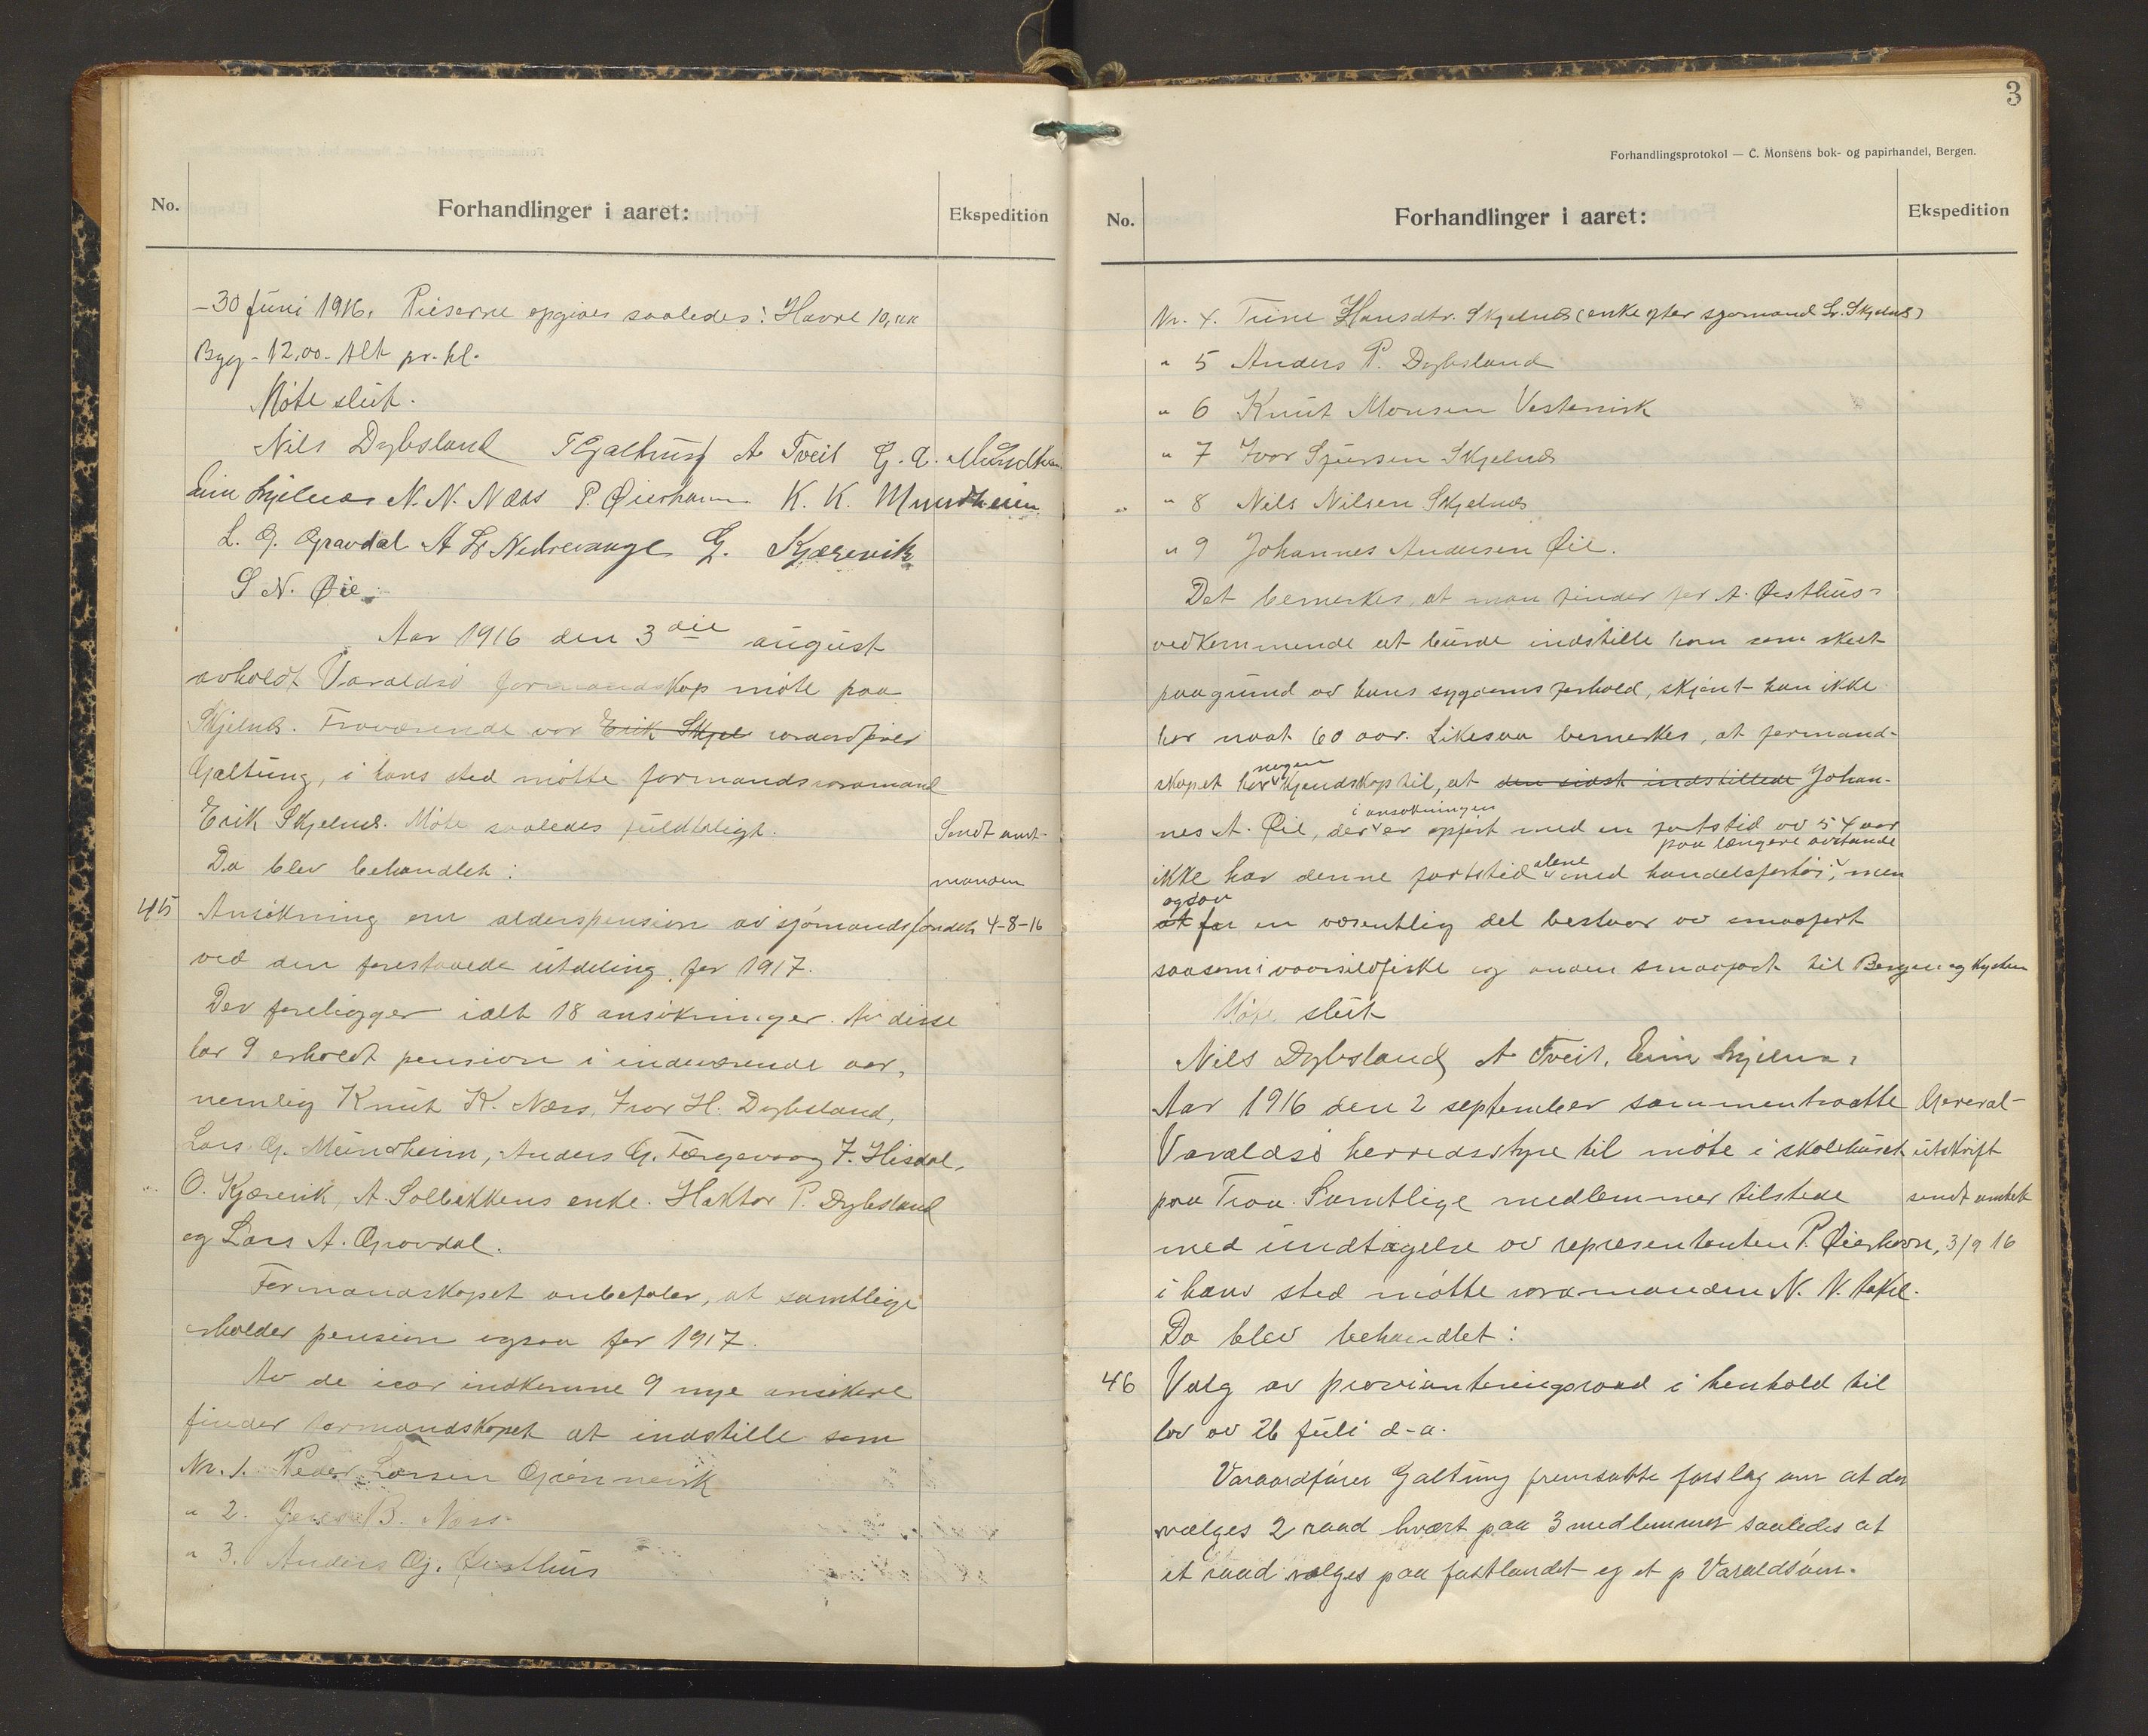 No.
Forhandlinger i aaret:
Ekspedition
- 30 juni 1916. Priserne opgives saaledes: Havre 10,00
Byg - 12,00. Alt pr. hl.
Møte slut.
Nils Dybsland T Galtung A Tveit G. A. Mundheim
Erik Skjelnes N. N. Næss P. Øierhavn K. K. Mundheim
L. G. Gravdal A L Nedrevaage G. Kjærevik
S N. Øie
Aar 1916 den 3die august
avholdt Varaldsø formandskap møte paa
Skjelnes. Fraværende var Erik Skjel varaordfører
Galtung, i hans sted møtte formandsvaramand
Erik Skjelnes. Møte saaledes fuldtaligt.
Da blev behandlet:
Sendt amt-
manden
4-8-16
45 Ansøkning om alderspension av sjømandsfondet
ved den forestaaede utdeling for 1917.
Der foreligger ialt 18 ansøkninger. Av disse
har 9 erholdt pension i indeværende aar,
nemlig Knut K. Næss, Ivar H. Dybsland,
Lars G. Mundheim, Anders G. Færgevaag, J. Hisdal,
O. Kjærevik, A. Solbakkens enke. Haktor P. Dybsland
og Lars A. Gravdal.
Formandskapet anbefaler, at samtlige
erholder pension ogsaa for 1917.
Av de iaar indkomne 9 nye ansøkere
finder formandskapet at indstille som
Nr. 1. Peder Larsen Gjønnevik
" 2. B. Næss
" 3. Anders Gj. Øvsthus
3
Forhandlingsprotokol — C. Monsens bok- og papirhandel, Bergen.
No.
Forhandlinger i aaret:
Ekspedition
Nr. 4. Trine Hansdtr. Skjelnes (enke efter sjømand L. Skjelnes)
" 5 Anders P. Dybsland
" 6 Knut Monsen Vestervik
" 7 Ivar Sjursen Skjelnes
" 8 Nils Nilsen Skjelnes
" 9 Johannes Andersen Øie.
Det bemerkes, at man finder for A. Øvsthus-
vedkommende at burde indstille ham som skeet
paagrund av hans sygdoms forhold, skjønt han ikke
har naat 60 aar. Likesaa bemerkes, at formand-
skapet har nogen kjendskap til, at den sidst indstillede Johan-
nes A. Øie, der i ansøkningen er opført med en fartstid av 54 aar
ikke har denne fartstid alene med handelsfartøi paa længere avstande, men
at ogsaa for en væsentlig del bestaar av smaafart
saasom i vaarsildfiske og anden smaafart til Bergen og kysten
Møte slut
Nils Dybsland A Tveit. Erik Skjelnes
Aar 1916 den 2 september sammentraatte
Varaldsø herredsstyre til møte i skolehuset
paa Traa. Samtlige medlemmer tilstede
med undtagelse av repræsentanten P. Øierhavn,
i hans sted møtte varamanden N. N.
Da blev behandlet:
General-
utskrift
sendt amtet
3/9 16
46 Valg av provianteringsraad i henhold til
lov av 26 juli d-a.
Varaordfører Galtung fremsatte forslag om at der
vælges 2 raad hvert paa 3 medlemmer saaledes at
et raad vælges paa fastlandet og et p Varaldsøen.